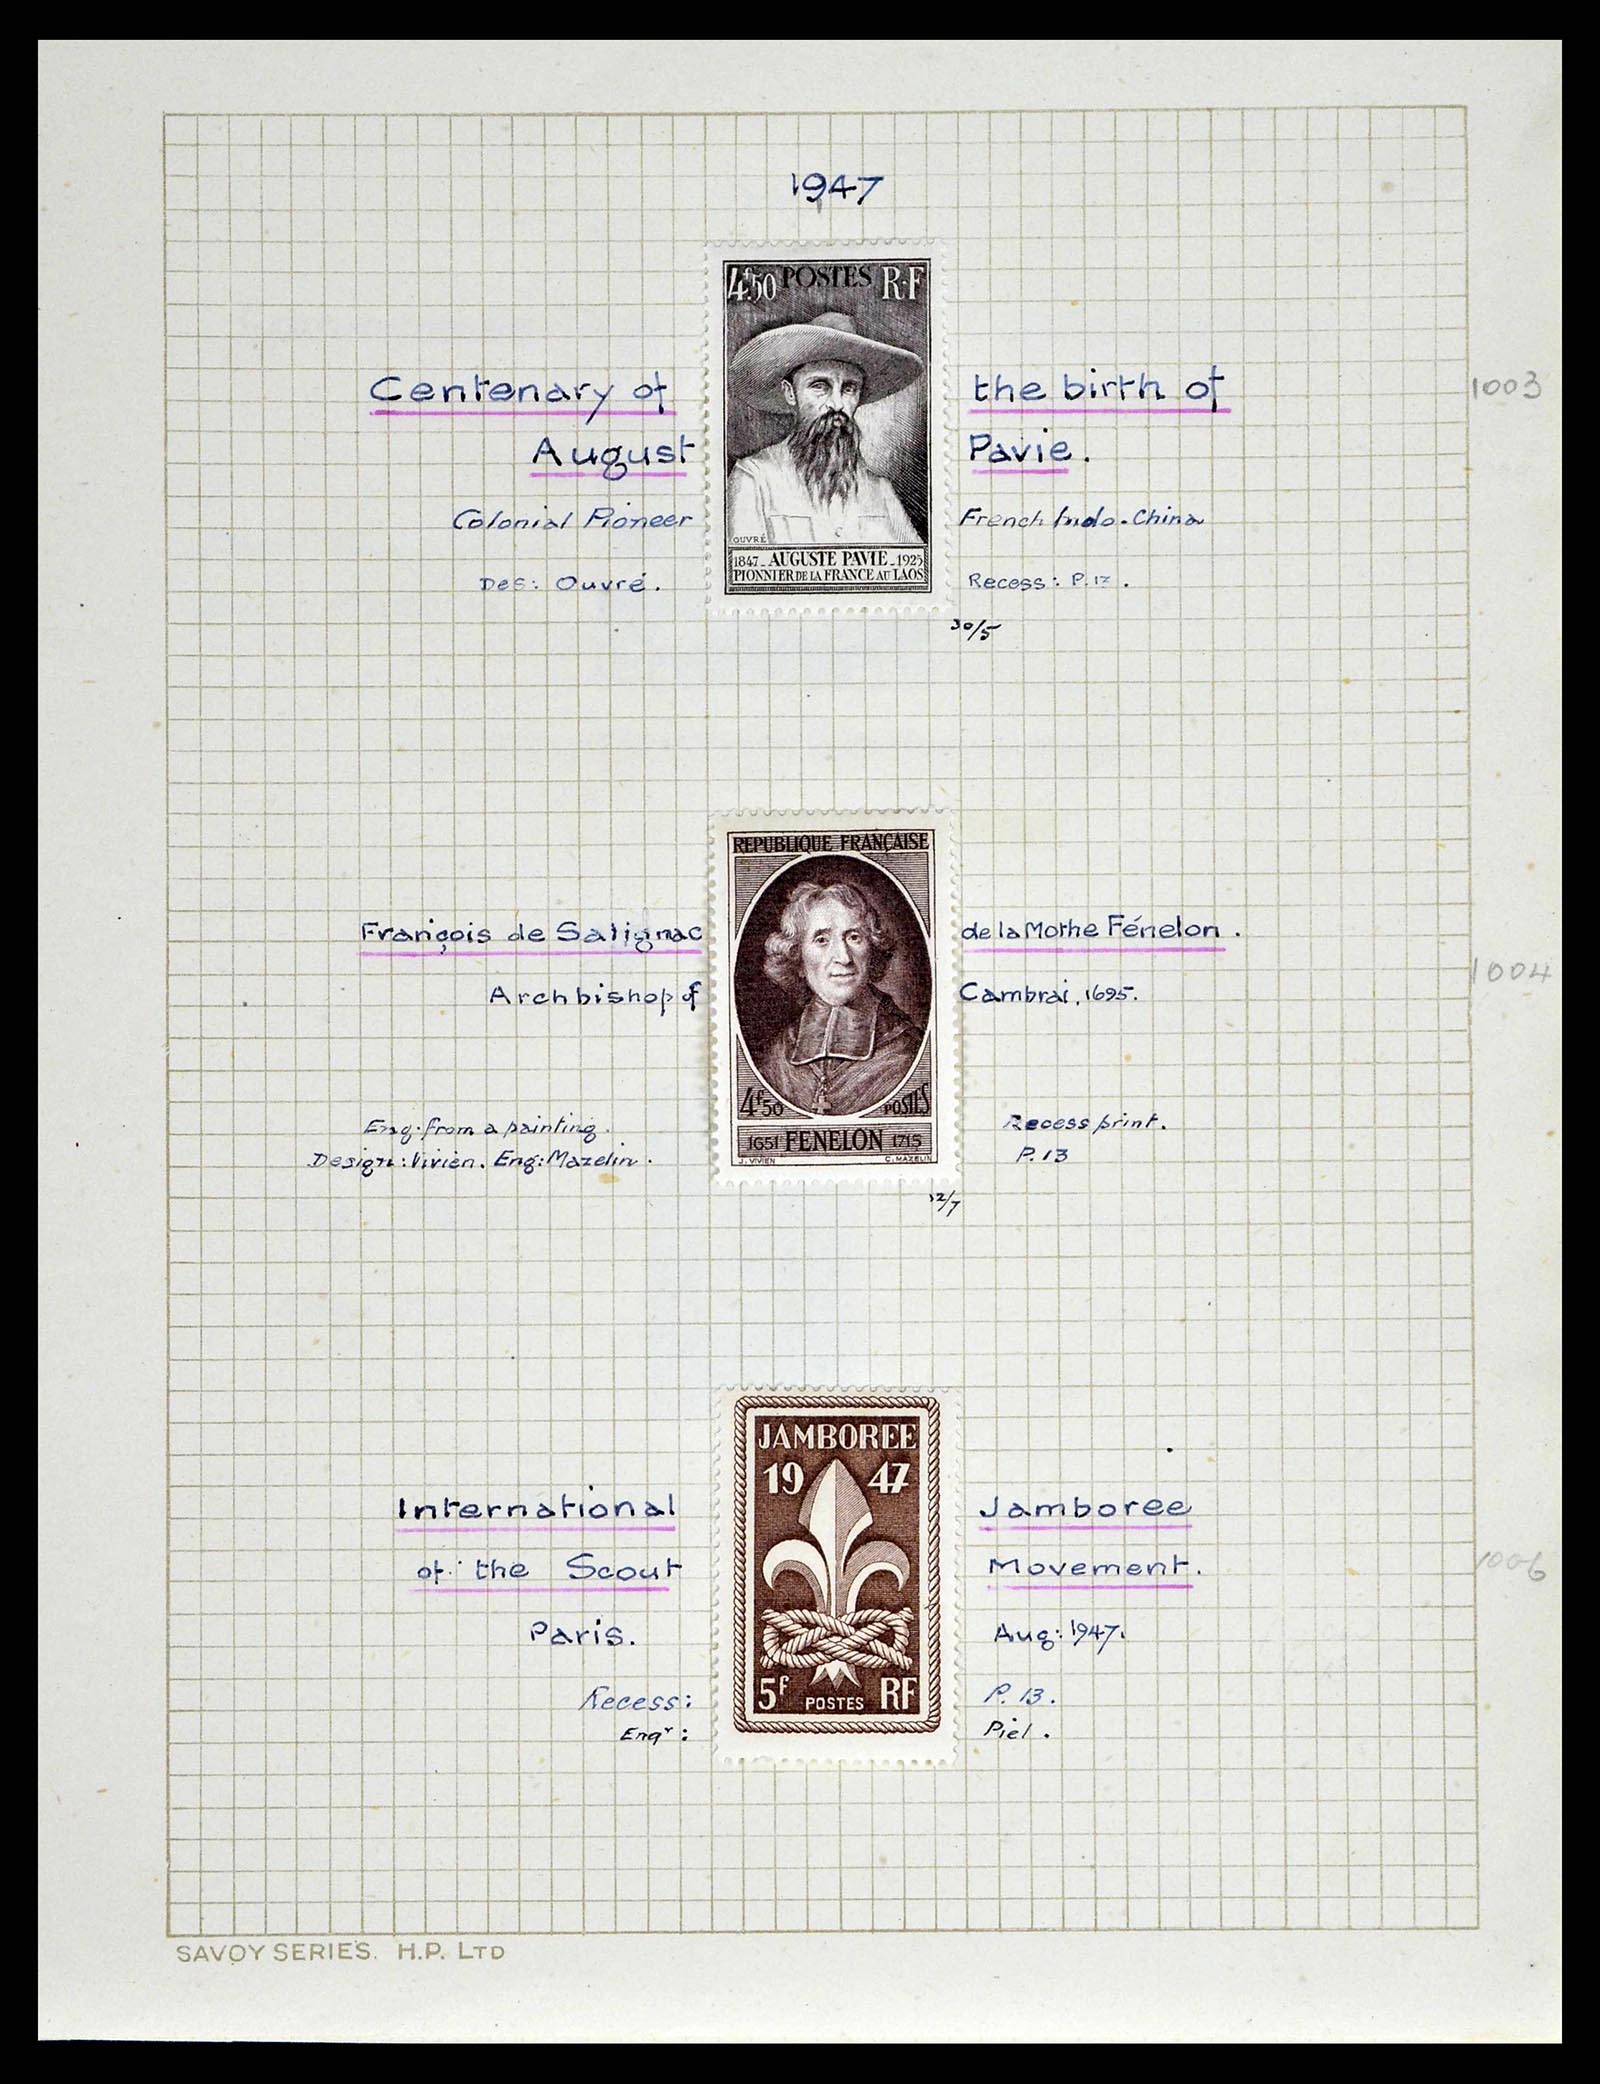 1947
4f50 POSTES R·F
Centenary of the birth of
1003
August Pavie.
Colonial Pioneer French Indo-China
OUVRÉ
1847 - AUGUSTE PAVIE - 1925
PIONNIER DE LA FRANCE AU LAOS
Des: Ouvré. Recess: P. 13.
30/5
REPUBLIQUE FRANÇAISE
François de Salignac de la Mothe Fénelon.
1004
Archbishop of Cambrai, 1695.
4f50 POSTES
Eng. from a painting. Recess print.
1651 FENELON 1715
Design: Vivien. Eng: Mazelin. P. 13
J. VIVIEN C. MAZELIN
12/7
JAMBOREE
19 47
International Jamboree
of the Scout Movement.
1006
Paris. Aug: 1947.
5f POSTES RF
Recess: P. 13.
Engr: Piel.
SAVOY SERIES. H.P. LTD